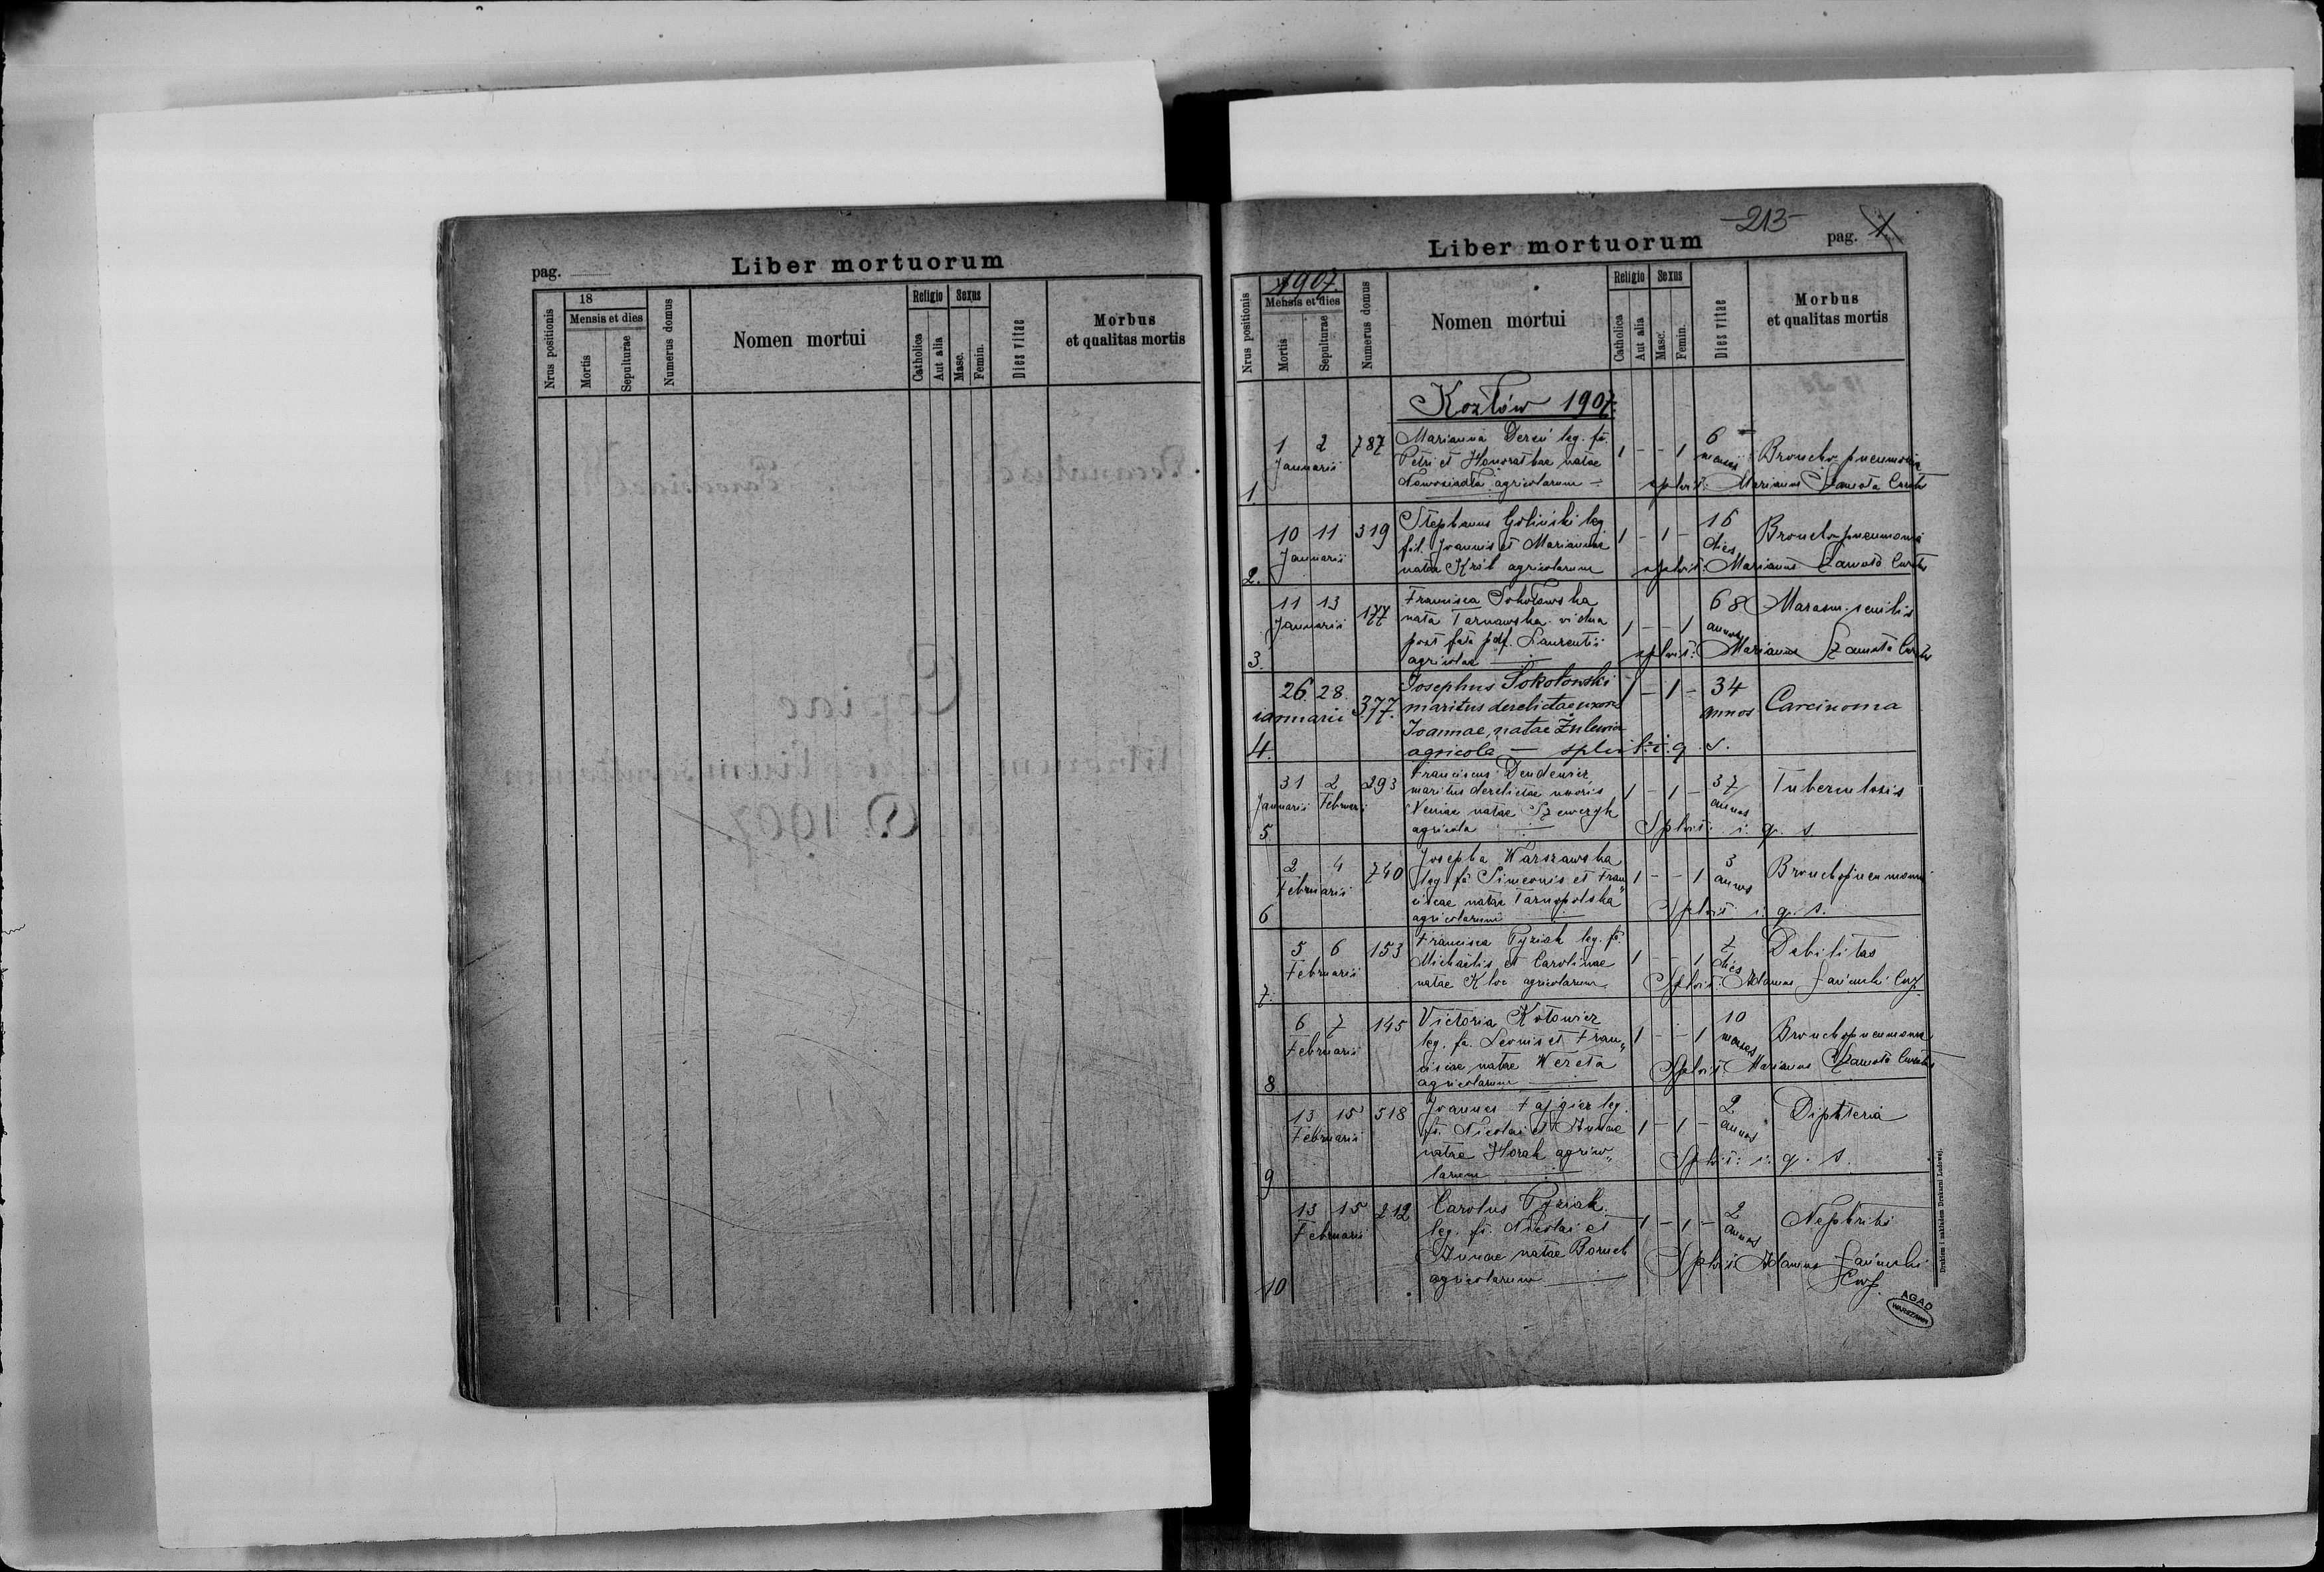 pag.
Liber mortuorum
Nrus positionis
18
Mensis et dies
Mortis
Sepulturae
Numerus domus
Nomen mortui
Religio
Catholica
Aut alia
Sexus
Masc.
Femin.
Dies vitae
Morbus
et qualitas mortis
-213-
Liber mortuorum
pag. 1
Nrus positionis
1907.
Mensis et dies
Mortis
Sepulturae
Numerus domus
Nomen mortui
Religio
Catholica
Aut alia
Sexus
Masc.
Femin.
Dies vitae
Morbus
et qualitas mortis
Kozłów 1907.
1 2 787 Marianna Dereń leg. fa. 1 - - 1 6
Januarii Petri et Honorathae natae menses Broncho pneumonia
1. Nowosiadła agricolarum splvit: Marianus Szamota Curatus
10 11 319 Stephanus Goliński leg. 1 - 1 - 16 Bronchopneumonia
Januarii fil. Joannis et Mariannae dies
2. natae Król agricolarum splvit: Marianus Szamota Curatus
11 13 177 Francisca Sokołowska 68 Marasm. senilis
Januarii nata Tarnawska vidua 1 - - 1 annos
post fata pdf. Laurentii splvit: Marianus Szamota Curatus
3. agricolae
26. 28. 377. Josephus Sokołowski 1 - 1 - 34 Carcinoma
ianuarii maritus derelictae uxoris annos
Joannae, natae
4. agricola — splvit: i. q. s.
31 2 293 Franciscus Dendewicz 1 - 1 - 37 Tuberculosis
Januarii Februarii maritus derelictae uxoris annos
Xeniae natae Szewczyk
5 agricola Splvit: i. q. s.
2 4 740 Josepha Warszawska 3 Bronchopneumonia
Februarii leg fa Simeonis et Fran„ 1 - - 1 annos
ciscae natae Tarnopolska
6 agricolarum Splvit i. q. s.
5 6 153 Francisca Pyziak leg. fa. 1 - - 1 7 Debilitas
Februarii Michaëlis et Carolinae dies
7. natae Kloc agricolarum Splvit: Adamus
6 7 145 Victoria Kotowicz 10
Februarii leg. fa. Leonis et Fran„ 1 - - 1 menses Bronchopneumonia
ciscae natae Wereta Splvit: Marianus Szamota Curatus
8 agricolarum
13 15 518 Joannes Fajgier leg. 2 Dipteria
Februarii fs. Nicolai et Annae 1 - 1 - annos
natae Horak agrico„ Splvit: i. q. s.
9 larum
13 15 212 Carolus Pyziak 2 Nephritis
Februarii leg. fs. Nicolai et 1 - 1 - annos
Annae natae Boruch Splvit Adamus
10 agricolarum
Drukiem i nakładem Drukarni Ludowej.
AGAD
WARSZAWA